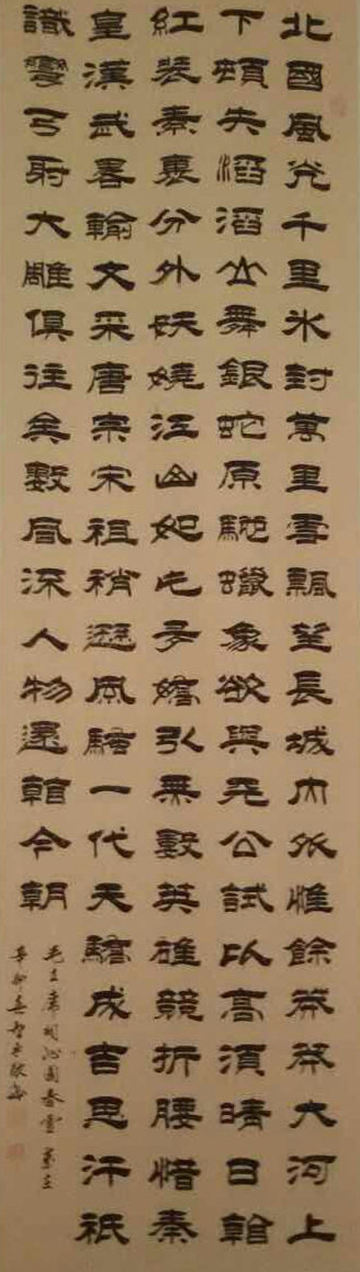 北國風光千里氷封萬里雪飄望長城內外惟餘莽莽大河上
下頓失滔滔山舞銀蛇原馳蠟象欲與天公試比高須晴日看
紅裝素裹分外妖嬈江山如此多嬌引無數英雄競折腰惜秦
皇漢武畧輸文采唐宗宋祖稍遜風騷一代天驕成吉思汗祇
識彎弓射大雕俱往矣數風流人物還看今朝
毛主席詞沁園春雪
辛卯春